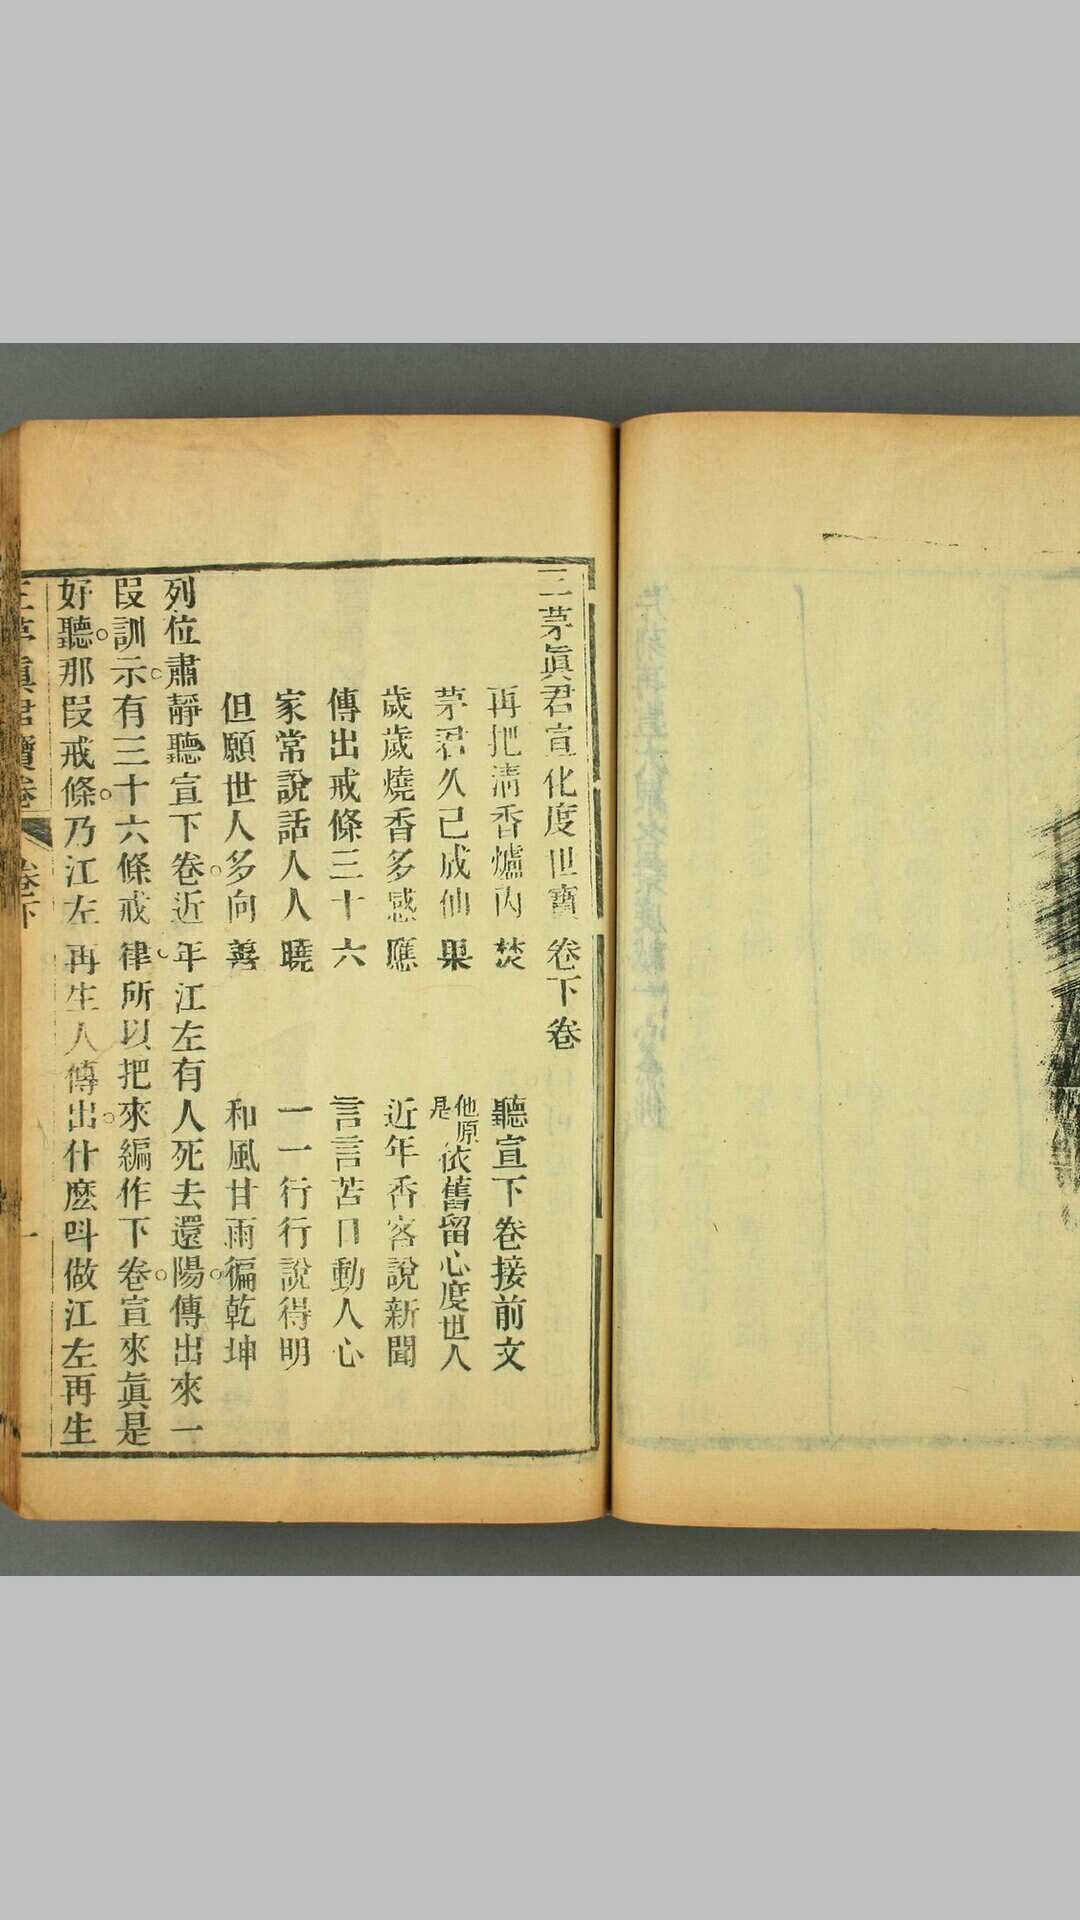 三茅眞君宣化度世寶卷下卷
再把清香爐內焚 聽宣下卷接前文
茅君久已成仙果 他原是依舊留心度世人
歲歲燒香多感應 近年香客說新聞
傳出戒條三十六 言言苦口動人心
家常說話人人曉 一一行行說得明
但願世人多向善 和風甘雨徧乾坤
列位肅靜聽宣下卷近年江左有人死去還陽傳出來一
段訓示有三十六條戒律所以把來編作下卷宣來眞是
好聽那段戒條乃江左再生人傳出什麽呌做江左再生
三茅眞君寶卷 卷下 一